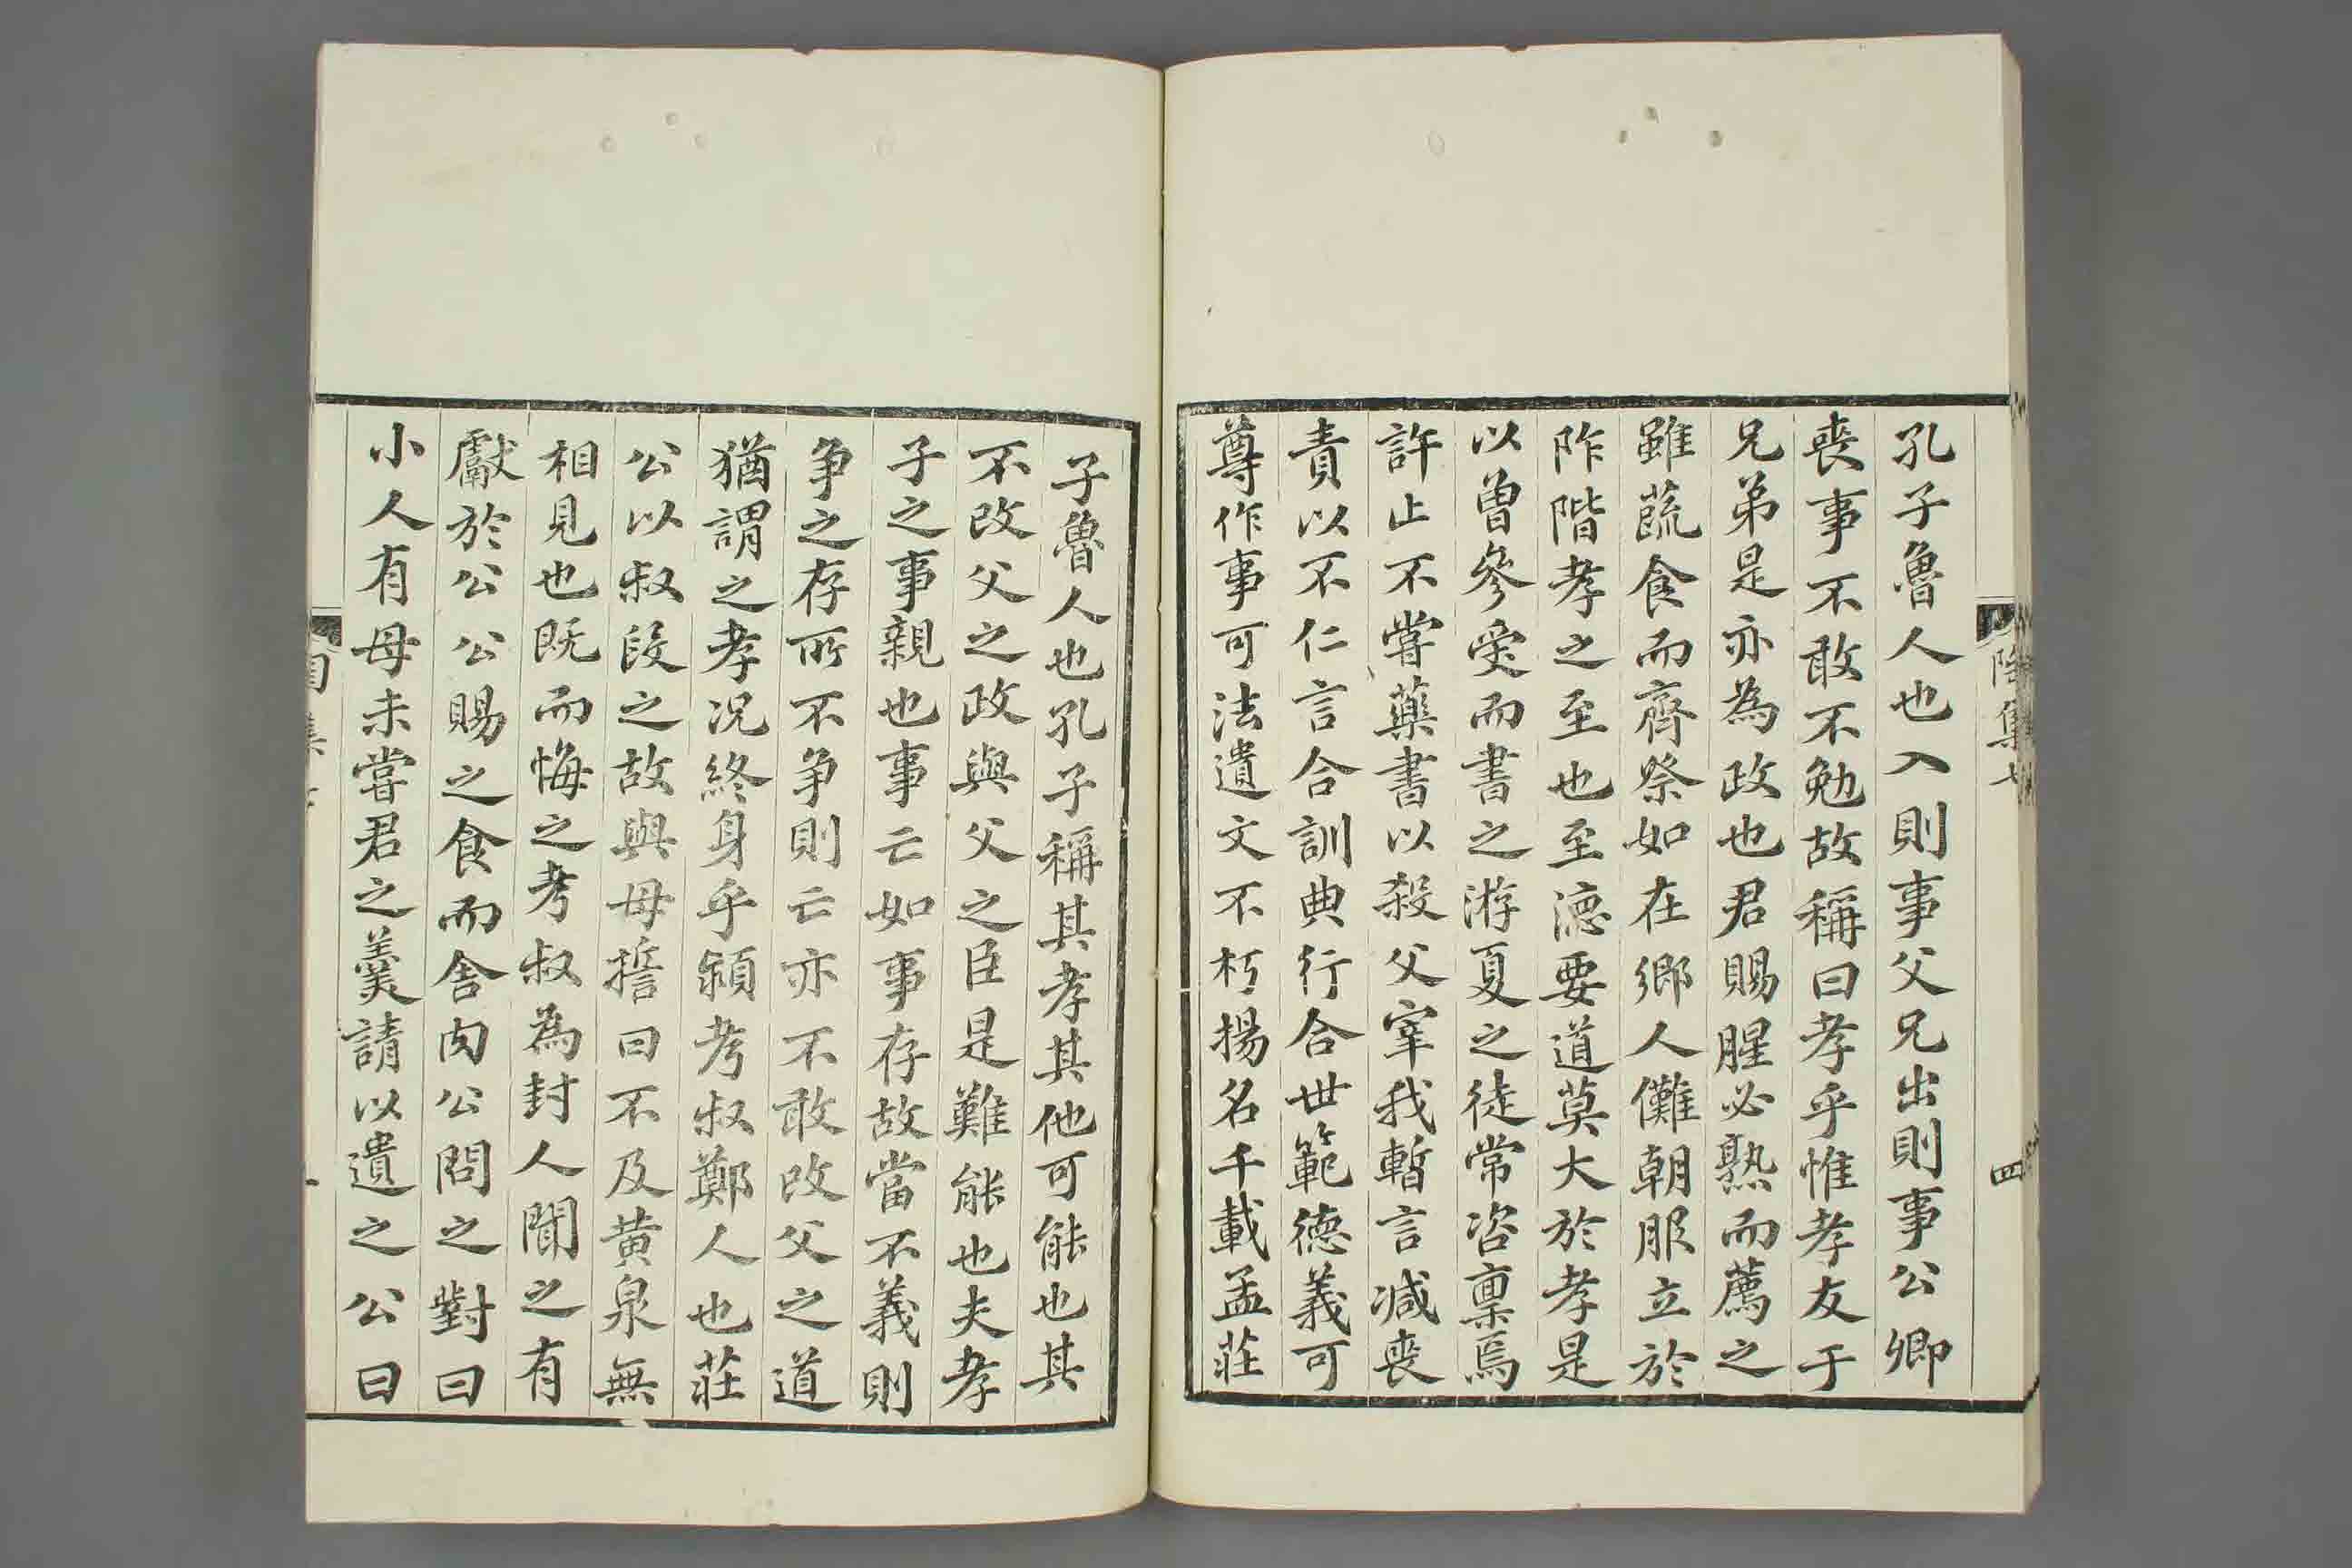 孔子魯人也入則事父兄出則事公卿
喪事不敢不勉故稱曰孝乎惟孝友于
兄弟是亦為政也君賜腥必熟而薦之
雖蔬食而齊祭如在鄉人儺朝服立於
阼階孝之至也至德要道莫大於孝是
以曾參受而書之游夏之徒常咨稟焉
許止不嘗藥書以殺父宰我暫言減喪
責以不仁言合訓典行合世範德義可
尊作事可法遺文不朽揚名千載孟莊
子魯人也孔子稱其孝其他可能也其
不改父之政與父之臣是難能也夫孝
子之事親也事亡如事存故當不義則
争之存所不争則亡亦不敢改父之道
猶謂之孝況終身乎潁考叔鄭人也莊
公以叔段之故與母誓曰不及黃泉無
相見也既而悔之考叔為封人聞之有
獻於公公賜之食而舍肉公問之對曰
小人有母未嘗君之羹請以遺之公曰
四